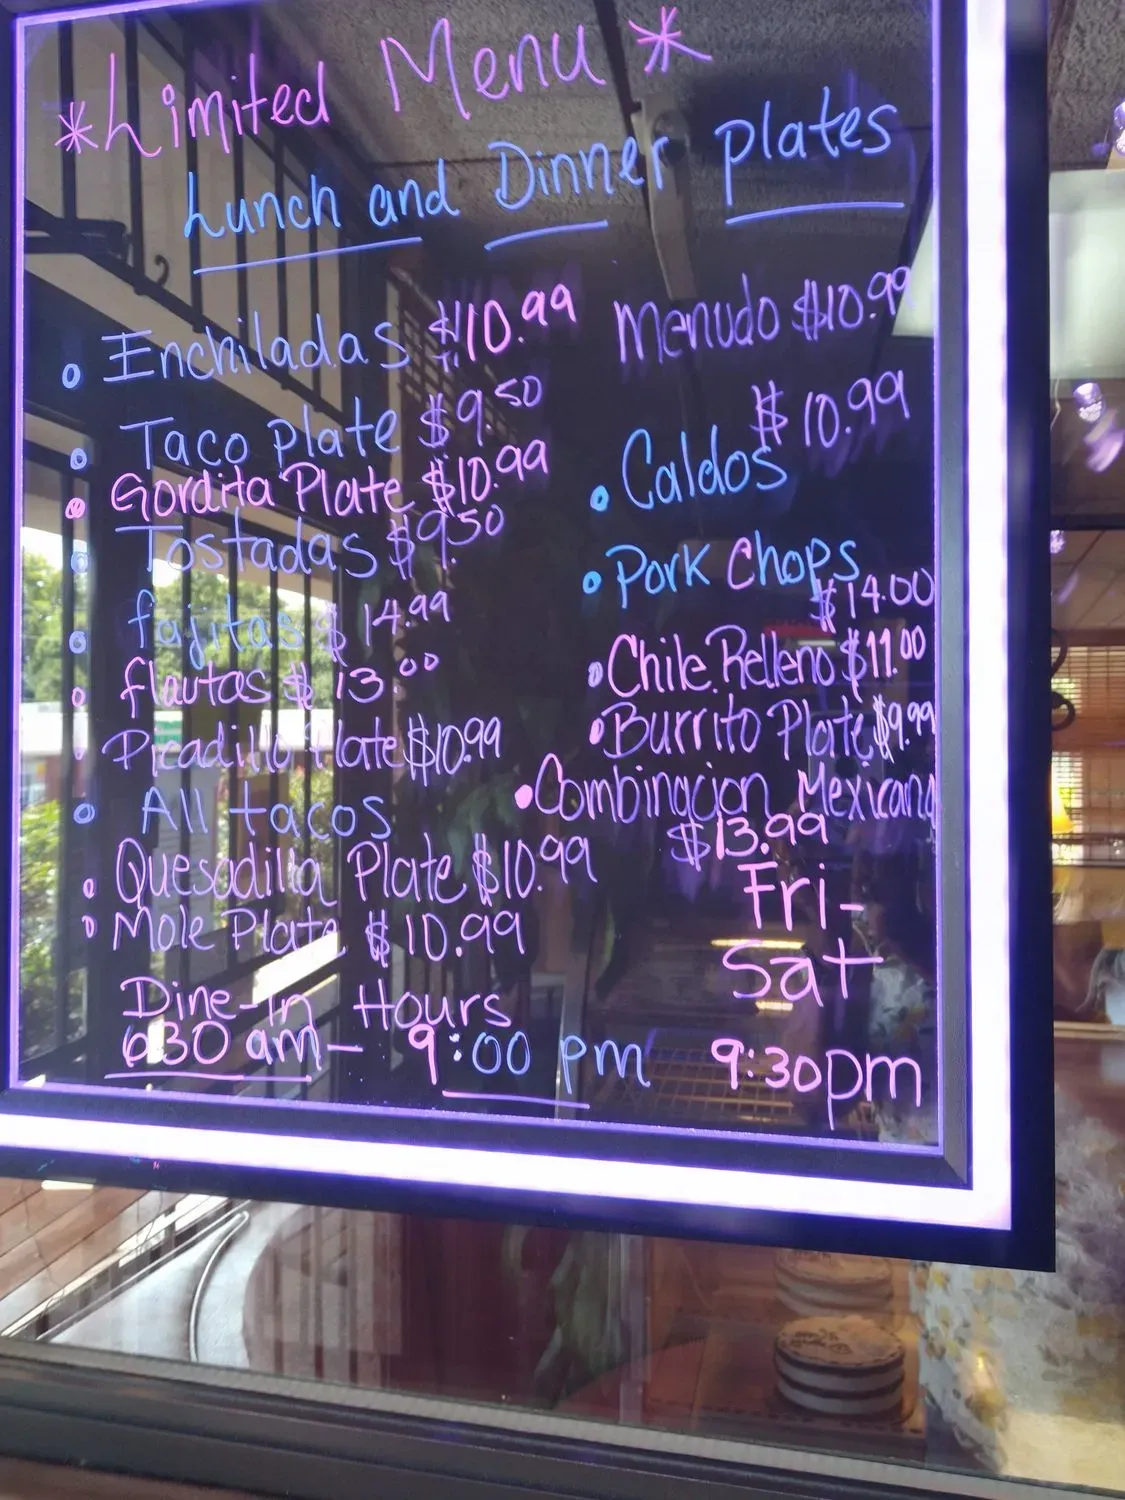 *Limited Menu*
Lunch and Dinner plates
Enchiladas $10.99
Taco plate $9.50
Gordita Plate $10.99
Tostadas $9.50
fajitas $14.99
flautas $13.00
Picadillo Plate $10.99
All tacos
Quesadilla Plate $10.99
Mole Plate $10.99
Menudo $10.99
$10.99
Caldos
Pork Chops
$14.00
Chile Relleno $11.00
Burrito Plate $9.99
Combinacion Mexicana
$13.99
Fri-
Sat
Dine-In Hours
630 am- 9:00 pm 9:30pm